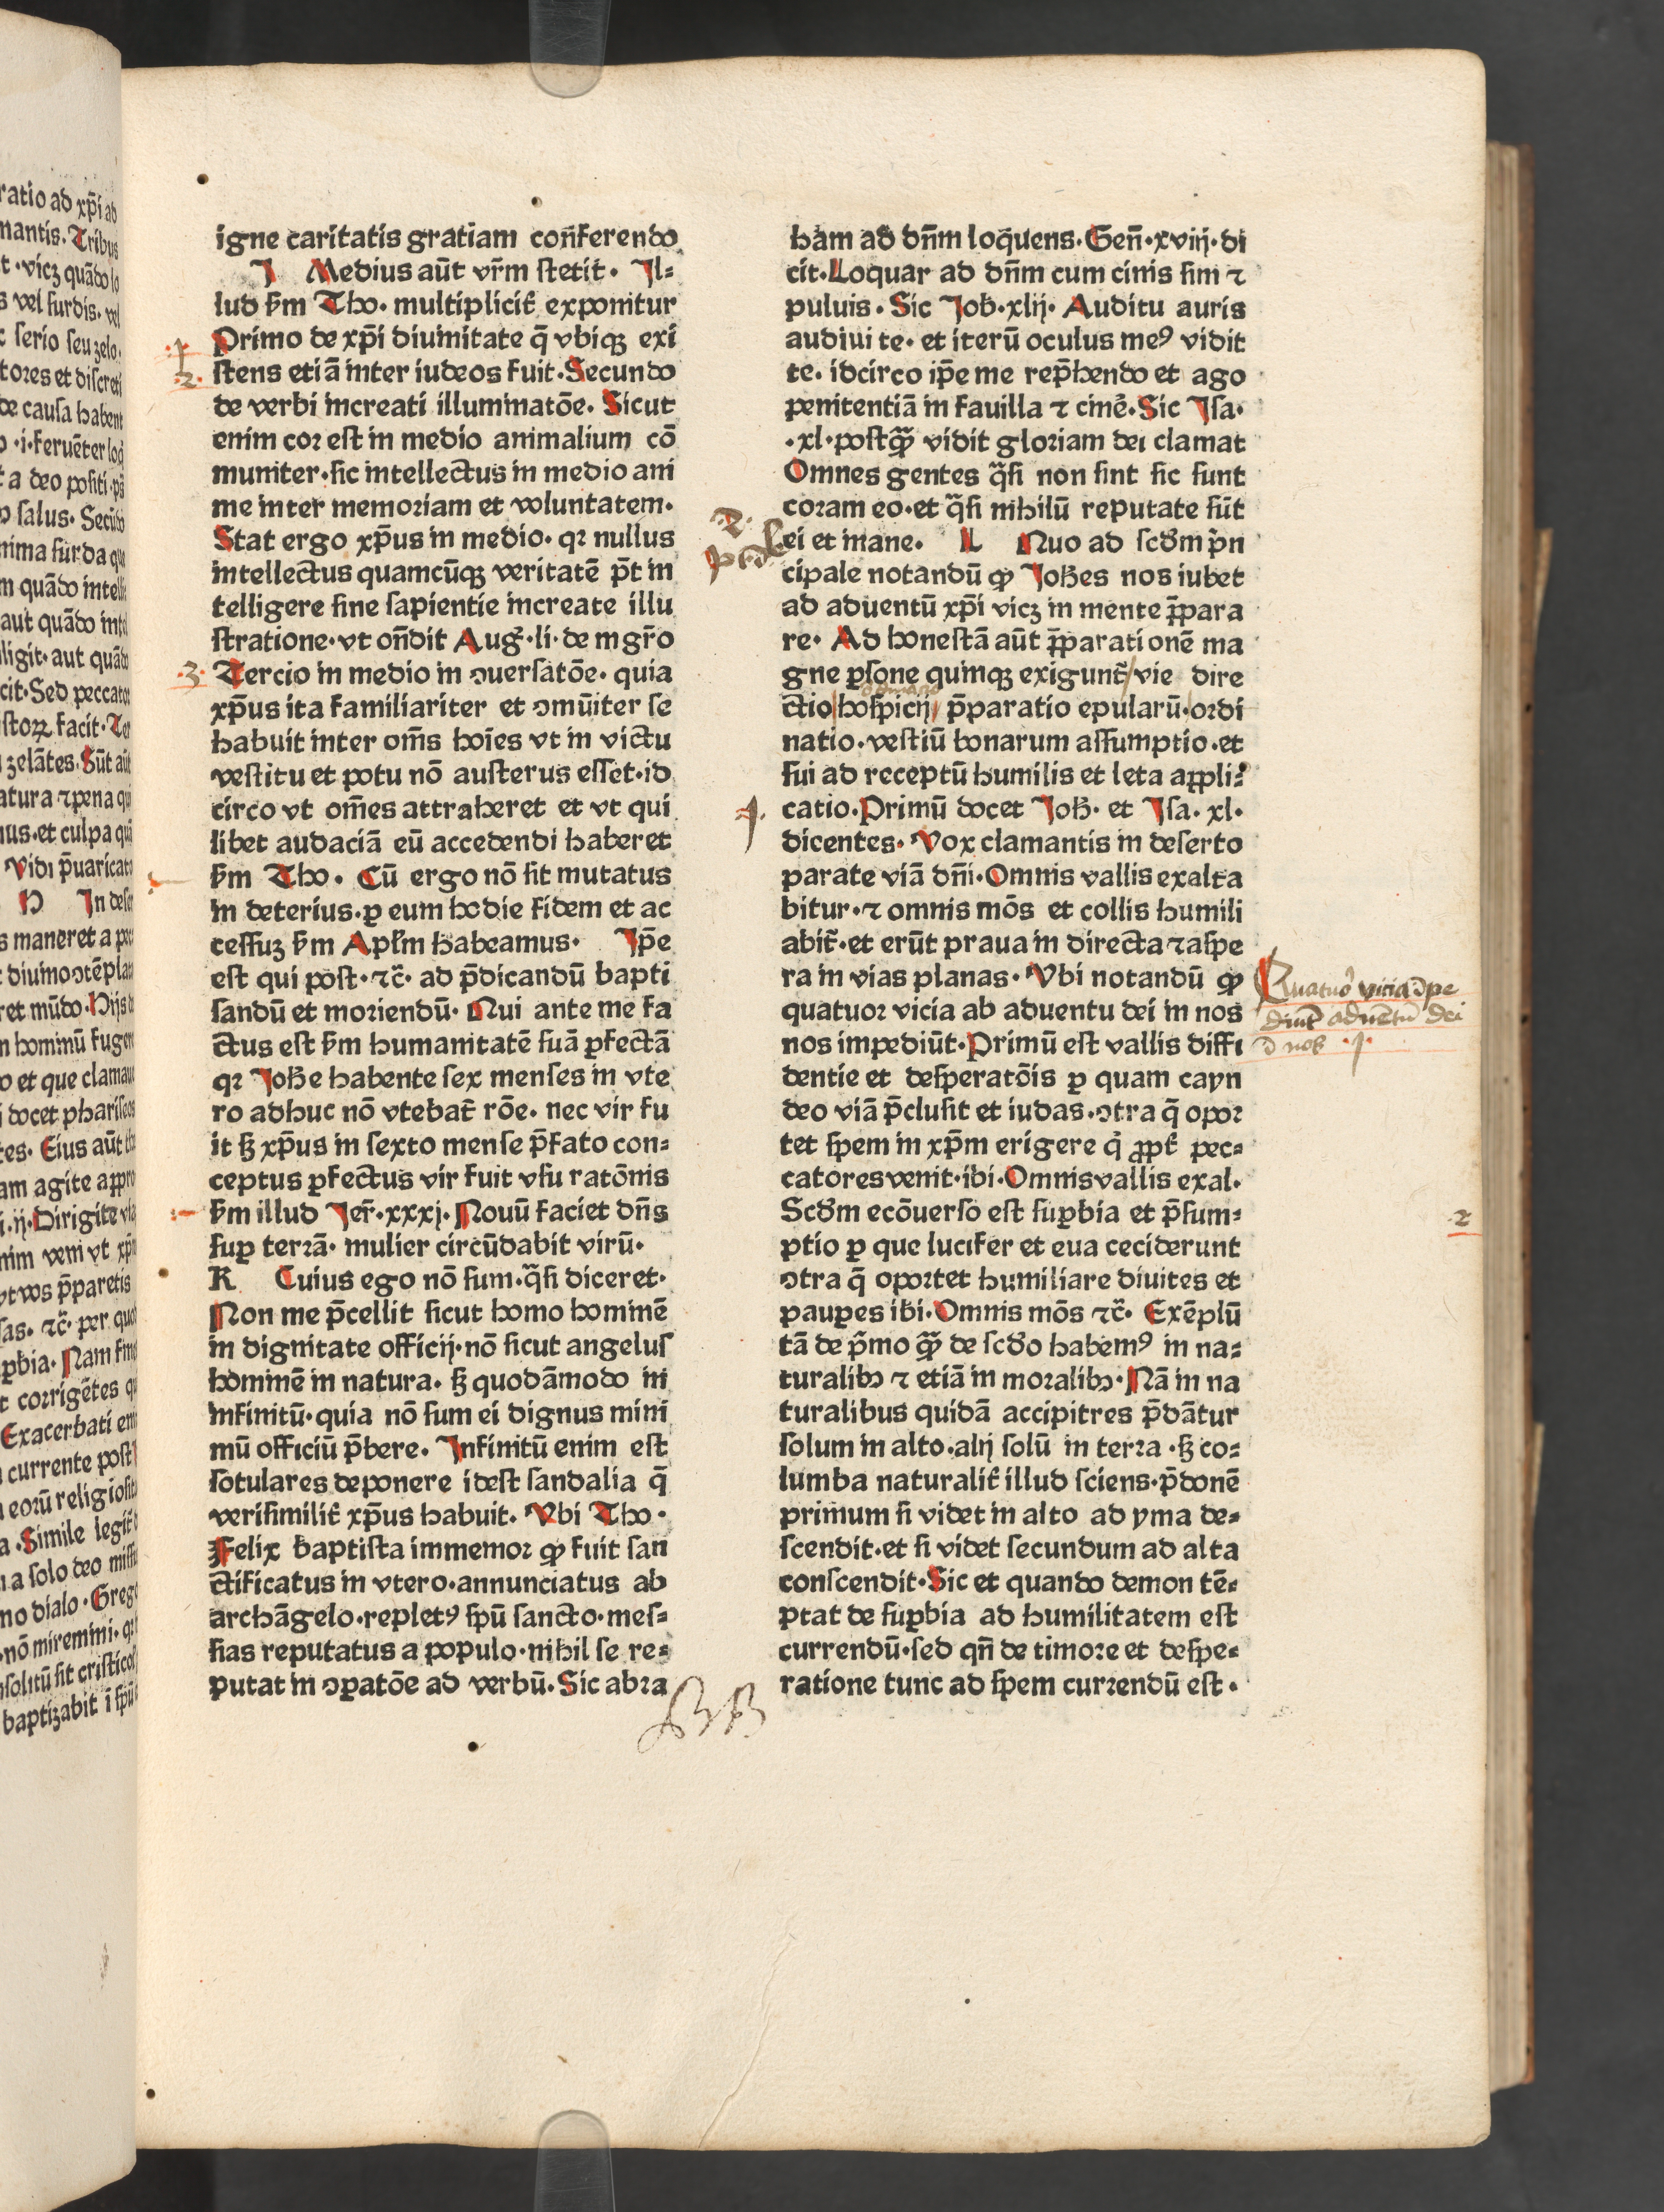 igne caritatis gratiam con̄ferendo
J Medius aūt vr̄m stetit. Il-
lud ẜm Tho. multipliciť exponitur
Primo de xp̄i diuinitate q̄ vbiqꝫ exi
stens etiā inter iudeos fuit. Secundo
de verbi increati illuminatōe. Sicut
enim cor est in medio animalium cō
muniter. sic intellectus in medio ani
me inter memoriam et voluntatem.
Stat ergo xp̄us in medio. qꝛ nullus
intellectus quamcūqꝫ veritatē p̄t in
telligere sine sapientie increate illu
stratione. vt on̄dit Aug̕. li. de mgr̄o
Tercio in medio in ꝯuersatōe. quia
xp̄us ita familiariter et ꝯmūiter se
habuit inter om̄s hoīes vt in victu
vestitu et potu nō austerus esset. id
circo vt om̄es attraheret et vt qui
libet audaciā eū accedendi haberet
ẜm Tho. Cū ergo nō sit mutatus
in deterius. ꝑ eum hodie fidem et ac
cessuꝫ ẜm Apl̄m habeamus. Ip̄e
est qui post. ⁊c̄. ad p̄dicandū bapti
sandū et moriendū. Qui ante me fa
ctus est ẜm humanitatē suā ꝑfectā
qꝛ Joh̄e habente sex menses in vte
ro adhuc nō vtebat̄ rōe. nec vir fu
it ẜꝫ xp̄us in sexto mense p̄fato con-
ceptus ꝑfectus vir fuit vsu ratōnis
ẜm illud Jer̄. xxxj. Nouū faciet dn̄s
suꝑ terrā. mulier circūdabit virū.
K Cuius ego nō sum. q̄si diceret.
Non me p̄cellit sicut homo hominē
in dignitate officij. nō sicut angelus
hominē in natura. ẜꝫ quodāmodo in
infinitū. quia nō sum ei dignus mini
mū officiū p̄bere. Infinitū enim est
sotulares deponere idest sandalia q̄
verisimiliť xp̄us habuit. Vbi Tho.
Felix baptista immemor ꝙ fuit san
ctificatus in vtero. annunciatus ab
archāgelo. repletꝰ spū sancto. mes-
sias reputatus a populo. nihil se re-
putat in ꝯꝑatōe ad verbū. Sic abra
BB
ham ad dn̄m loq̄uens. Gen̄. xviij. di
cit. Loquar ad dn̄m cum cinis sim ⁊
puluis. Sic Job. xlij. Auditu auris
audiui te. et iterū oculus meꝰ vidit
te. idcirco ip̄e me rep̄hendo et ago
penitentiā in fauilla ⁊ cine͛. Sic Isa.
.xl. postꝙ̄ vidit gloriam dei clamat
Omnes gentes q̄si non sint sic sunt
coram eo. et q̄si nihilū reputate sūt
ei et inane. L Quo ad scd̄m p̄n
cipale notandū ꝙ Joh̄es nos iubet
ad aduentū xp̄i vicꝫ in mente p̄para
re. Ad honestā aūt p̄parationē ma
gne ꝑsone quinqꝫ exigunt̄ vie dire
ctio hospicij p̄paratio epularū. ordi
natio. vestiū bonarum assumptio. et
sui ad receptū humilis et leta appli-
catio. Primū docet Joh̄. et Isa. xl.
dicentes. Vox clamantis in deserto
parate viā dn̄i. Omnis vallis exalta
bitur. ⁊ omnis mōs et collis humili
abit̄. et erūt praua in directa ⁊aspe
ra in vias planas. Vbi notandū ꝙ
quatuor vicia ab aduentu dei in nos
nos impediūt. Primū est vallis diffi
dentie et desperatōis ꝑ quam cayn
deo viā p̄clusit et iudas. ꝯtra q̄ opor
tet spem in xp̄m erigere q̇ ꝓpť pec-
catores venit. ibi. Omnis vallis exal.
Scd̄m ecōuerso est suꝑbia et p̄sum-
ptio ꝑ que lucifer et eua ceciderunt
ꝯtra q̄ oportet humiliare diuites et
pauꝑes ibi. Omnis mōs ⁊c̄. Exēplū
tā de p̄mo ꝙ̄ de scd̄o habemꝰ in na-
turalibꝫ ⁊ etiā in moralibꝫ. Nā in na
turalibus quidā accipitres p̄dātur
solum in alto. alij solū in terra. ẜꝫ co-
lumba naturaliť illud sciens. p̄donē
primum si videt in alto ad yma de-
scendit. et si videt secundum ad alta
conscendit. Sic et quando demon tē-
ptat de suꝑbia ad humilitatem est
currendū. sed qn̄ de timore et despe-
ratione tunc ad spem currendū est.